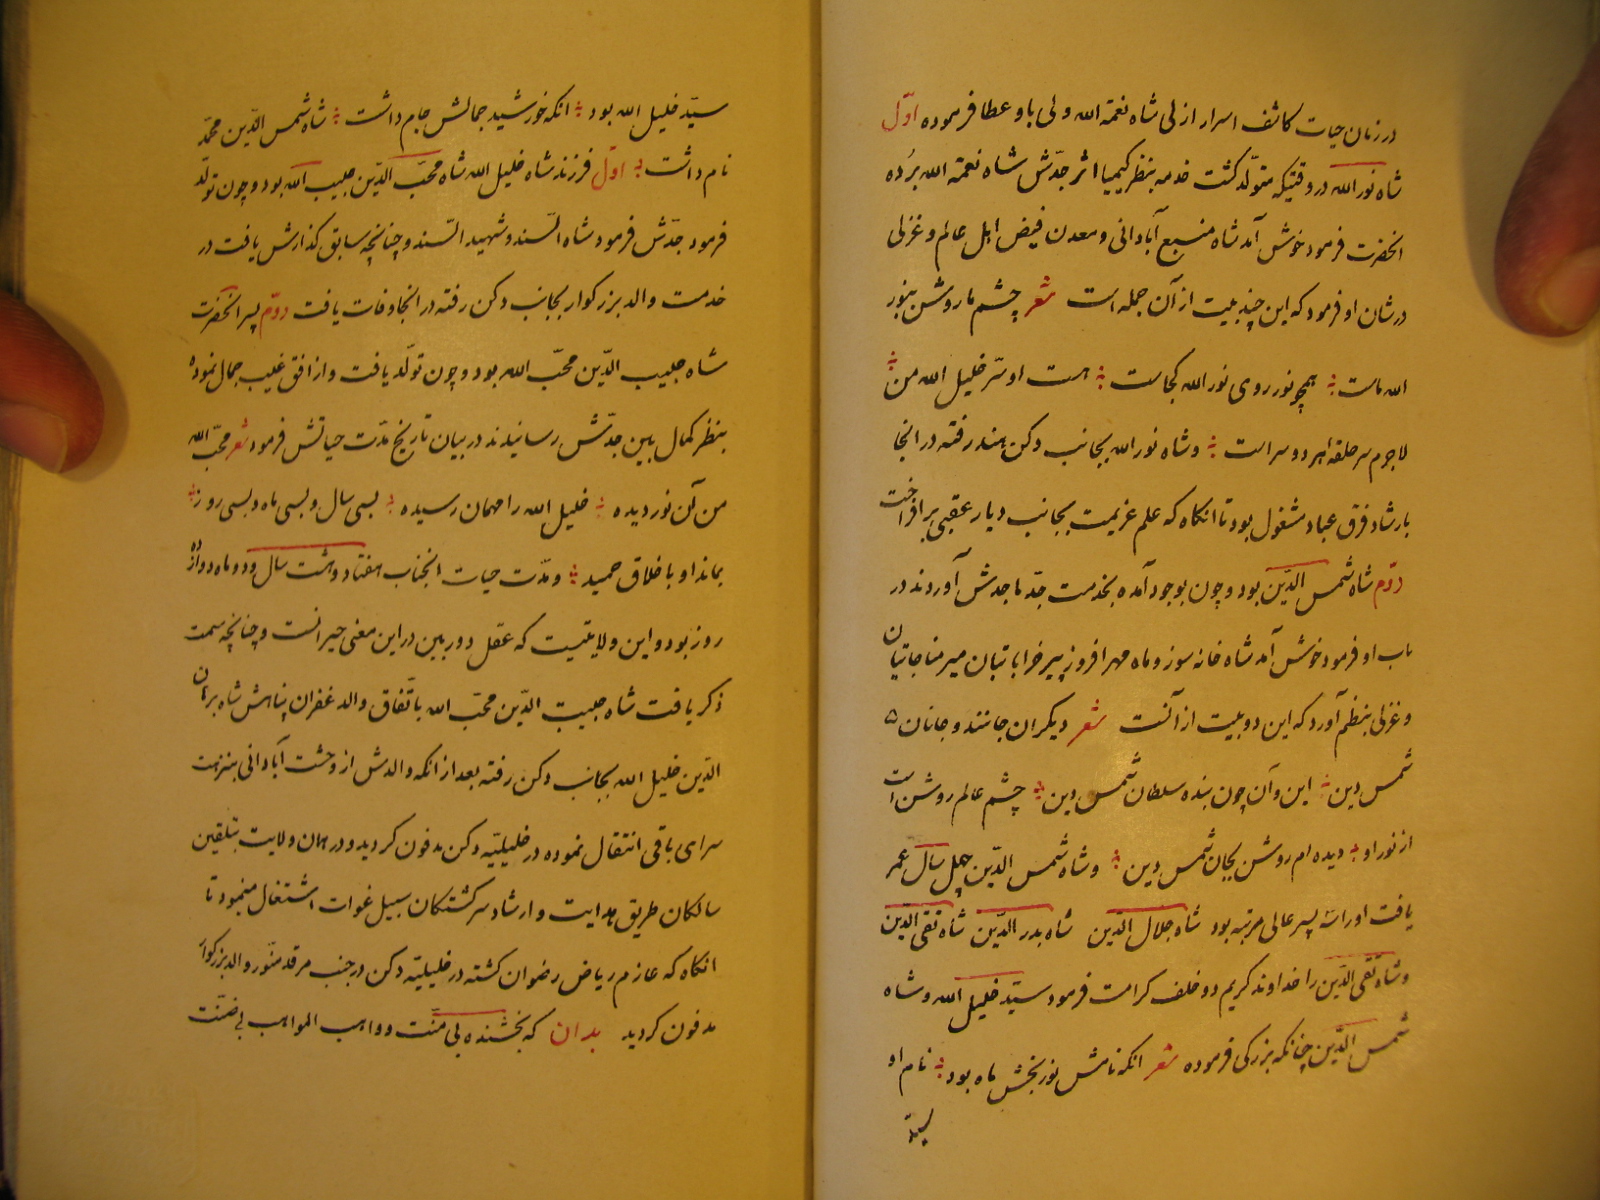 در زمان حیات کاشف اسرار ازلی شاه نعمة الله ولی باو عطا فرموده اوّل
شاه نور الله در وقتیکه متولّد گشت خدمه بنظر کیمیا اثر جدّش شاه نعمة الله برُده
انحضرت فرمود خوش آمد شاه منبع آبادانی و معدن فیض اهل عالم و غزلی
در شان او فرمود که این چند بیت از آن جمله است شعر چشم ما روشن بنور
الله ماست همچو نور روی نور الله کجاست هست او سرّ خلیل الله من
لاجرم سر حلقه هر دو سراست و شاه نور الله بجانب دکن هند رفته در انجا
بارشاد فرق عباد مشغول بود تا انکاه که علم عزیمت بجانب دیار عقبی برافراخت
دوّم شاه شمس الدّین بود و چون بوجود آمده بخدمت جدّ ماجدش آوردند در
باب او فرمود خوش آمد شاه خانه سوز و ماه مهر افروز پیر خراباتیان میر مناجاتیان
و غزلی بنظم آورد که این دو بیت از آنست شعر دیکران جانند و جانان
شمس دین این و آن چون بنده سلطان شمس دین چشم عالم روشن است
از نور او دیده ام روشن بجان شمس دین و شاه شمس الدّین چهل سال عمر
یافت او را سه پسر عالی مرتبه بود شاه جلال الدّین شاه بدر الدّین شاه تقی الدّین
و شاه تقی الدّین را خداوند کریم دو خلف کرامت فرمود سیّد خلیل الله و شاه
شمس الدّین چنانکه بزرکی فرموده شعر انکه نامش نور بخش ماه بود نام او
سیّد
سیّد خلیل الله بود انکه خورشید جمالش جام داشت شاه شمس الدّین محمّد
نام داشت اوّل فرزند شاه خلیل الله شاه محبّ الدّین حبیب الله بود و چون تولّد
فرمود جدّش فرمود شاه السّند و شهید السّند و چنانچه سابق کذارش یافت در
خدمت والد بزرکوار بجانب دکن رفته در انجا وفات یافت دوّم پسر انحضرت
شاه حبیب الدّین محبّ الله بود و چون تولّد یافت و از افق غیب جمال نموده
بنظر کمال بین جدّش رسانیدند در بیان تاریخ مدّت حیاتش فرمود شعر محبّ الله
من آن نور دیده خلیل الله را مهمان رسیده بسی سال و بسی ماه و بسی روز
بماند او با خلاق حمید و مدّت حیات انجناب هفتاد و هشت سال و دو ماه و دوازده
روز بود و این ولایتیست که عقل دور بین در این معنی حیرانست و چنانچه سمت
ذکر یافت شاه حبیب الدّین محبّ الله باتّفاق والد غفران پناهش شاه برهان
الدّین خلیل الله بجانب دکن رفته بعد از انکه والدش از وحشت آبادانی بنزهت
سرای باقی انتقال نموده در خلیلیّه دکن مدفون کردید و در همان ولایت بتلقین
سالکان طریق هدایت و ارشاد سرکشتکان سبیل غوات اشتغال مینمود تا
انکاه که عازم ریاض رضوان کشته در خلیلیّه دکن در جنب مرقد منّور والد بزرکوار
مدفون کردید بدان که بخشنده بی منّت و واهب المواهب بی ضنّت